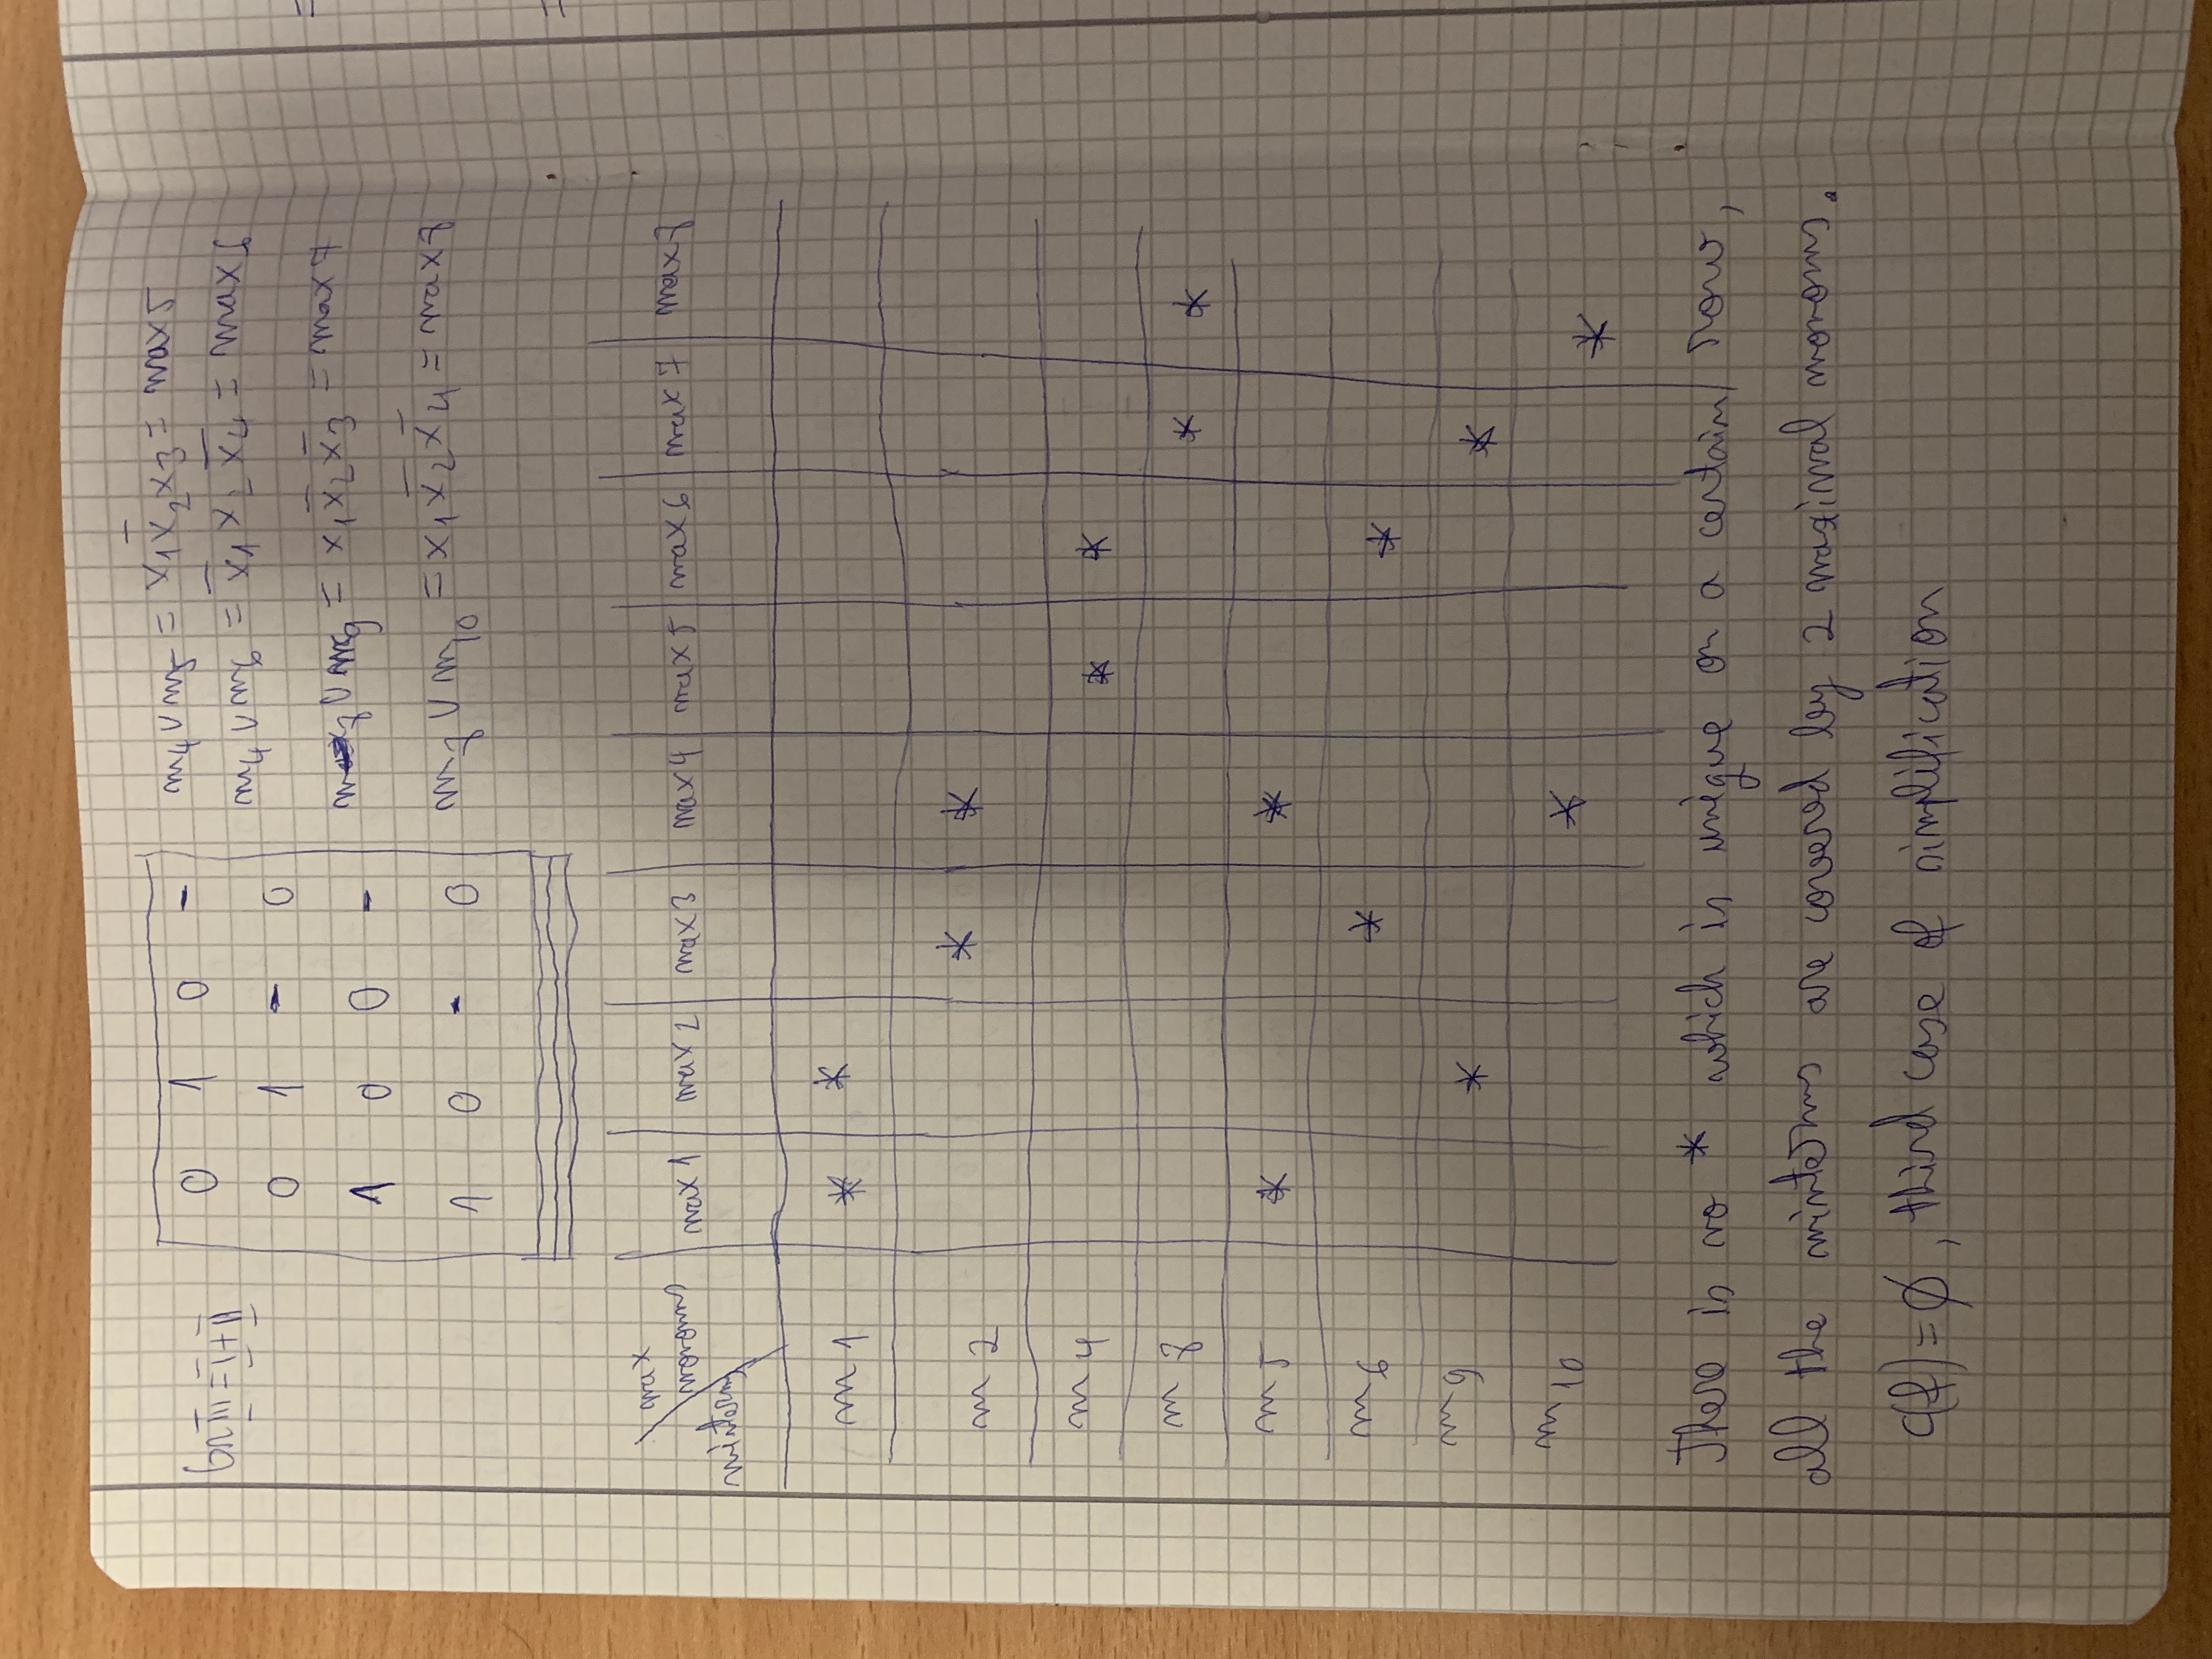 Gr III = I + II
0 1 0 - m4 ∨ m5 = x1 x̅2 x3 = max5
0 1 - 0 m4 ∨ m6 = x̅1 x2 x̅4 = max6
1 0 0 - m8 ∨ m9 = x1 x̅2 x̅3 = max7
1 0 - 0 m8 ∨ m10 = x1 x̅2 x̅4 = max8
max
monoms
minterms
max1 max2 max3 max4 max5 max6 max7 max8
m1 * *
m2 * *
m4 * *
m8 * *
m5 * *
m6 * *
m9 * *
m10 * *
There is no * which is unique on a certain row,
all the minterms are covered by 2 maximal monoms.
C(f) = ∅, third case of simplification
=
=